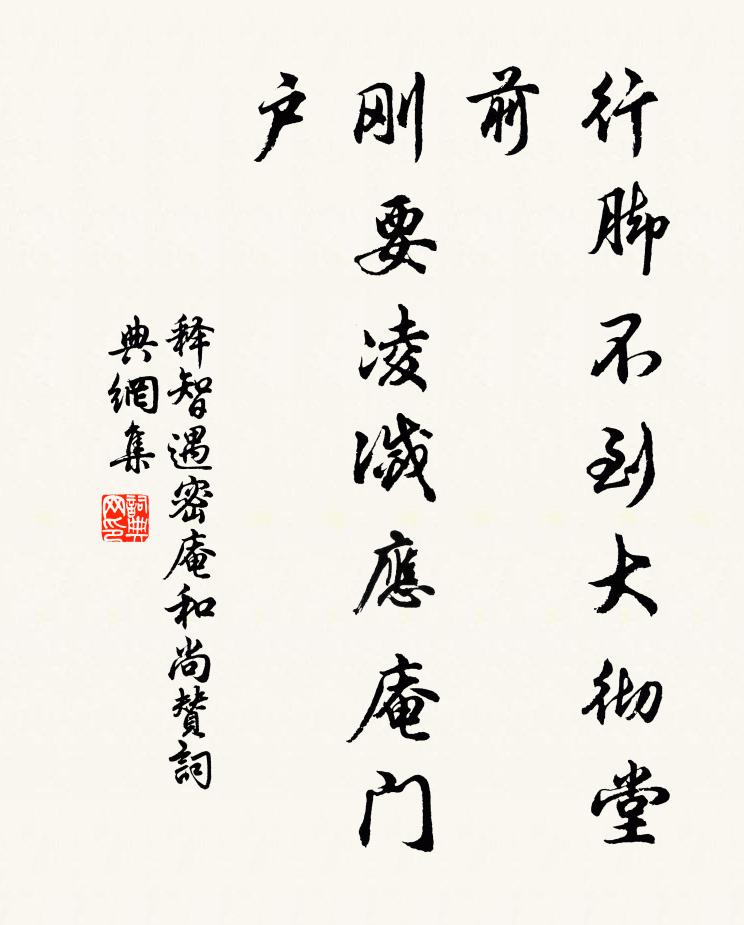 行脚不到大彻堂
前
刚要凌灭應庵门
户
释智遇密庵和尚赞詞
典網集
詞典网印